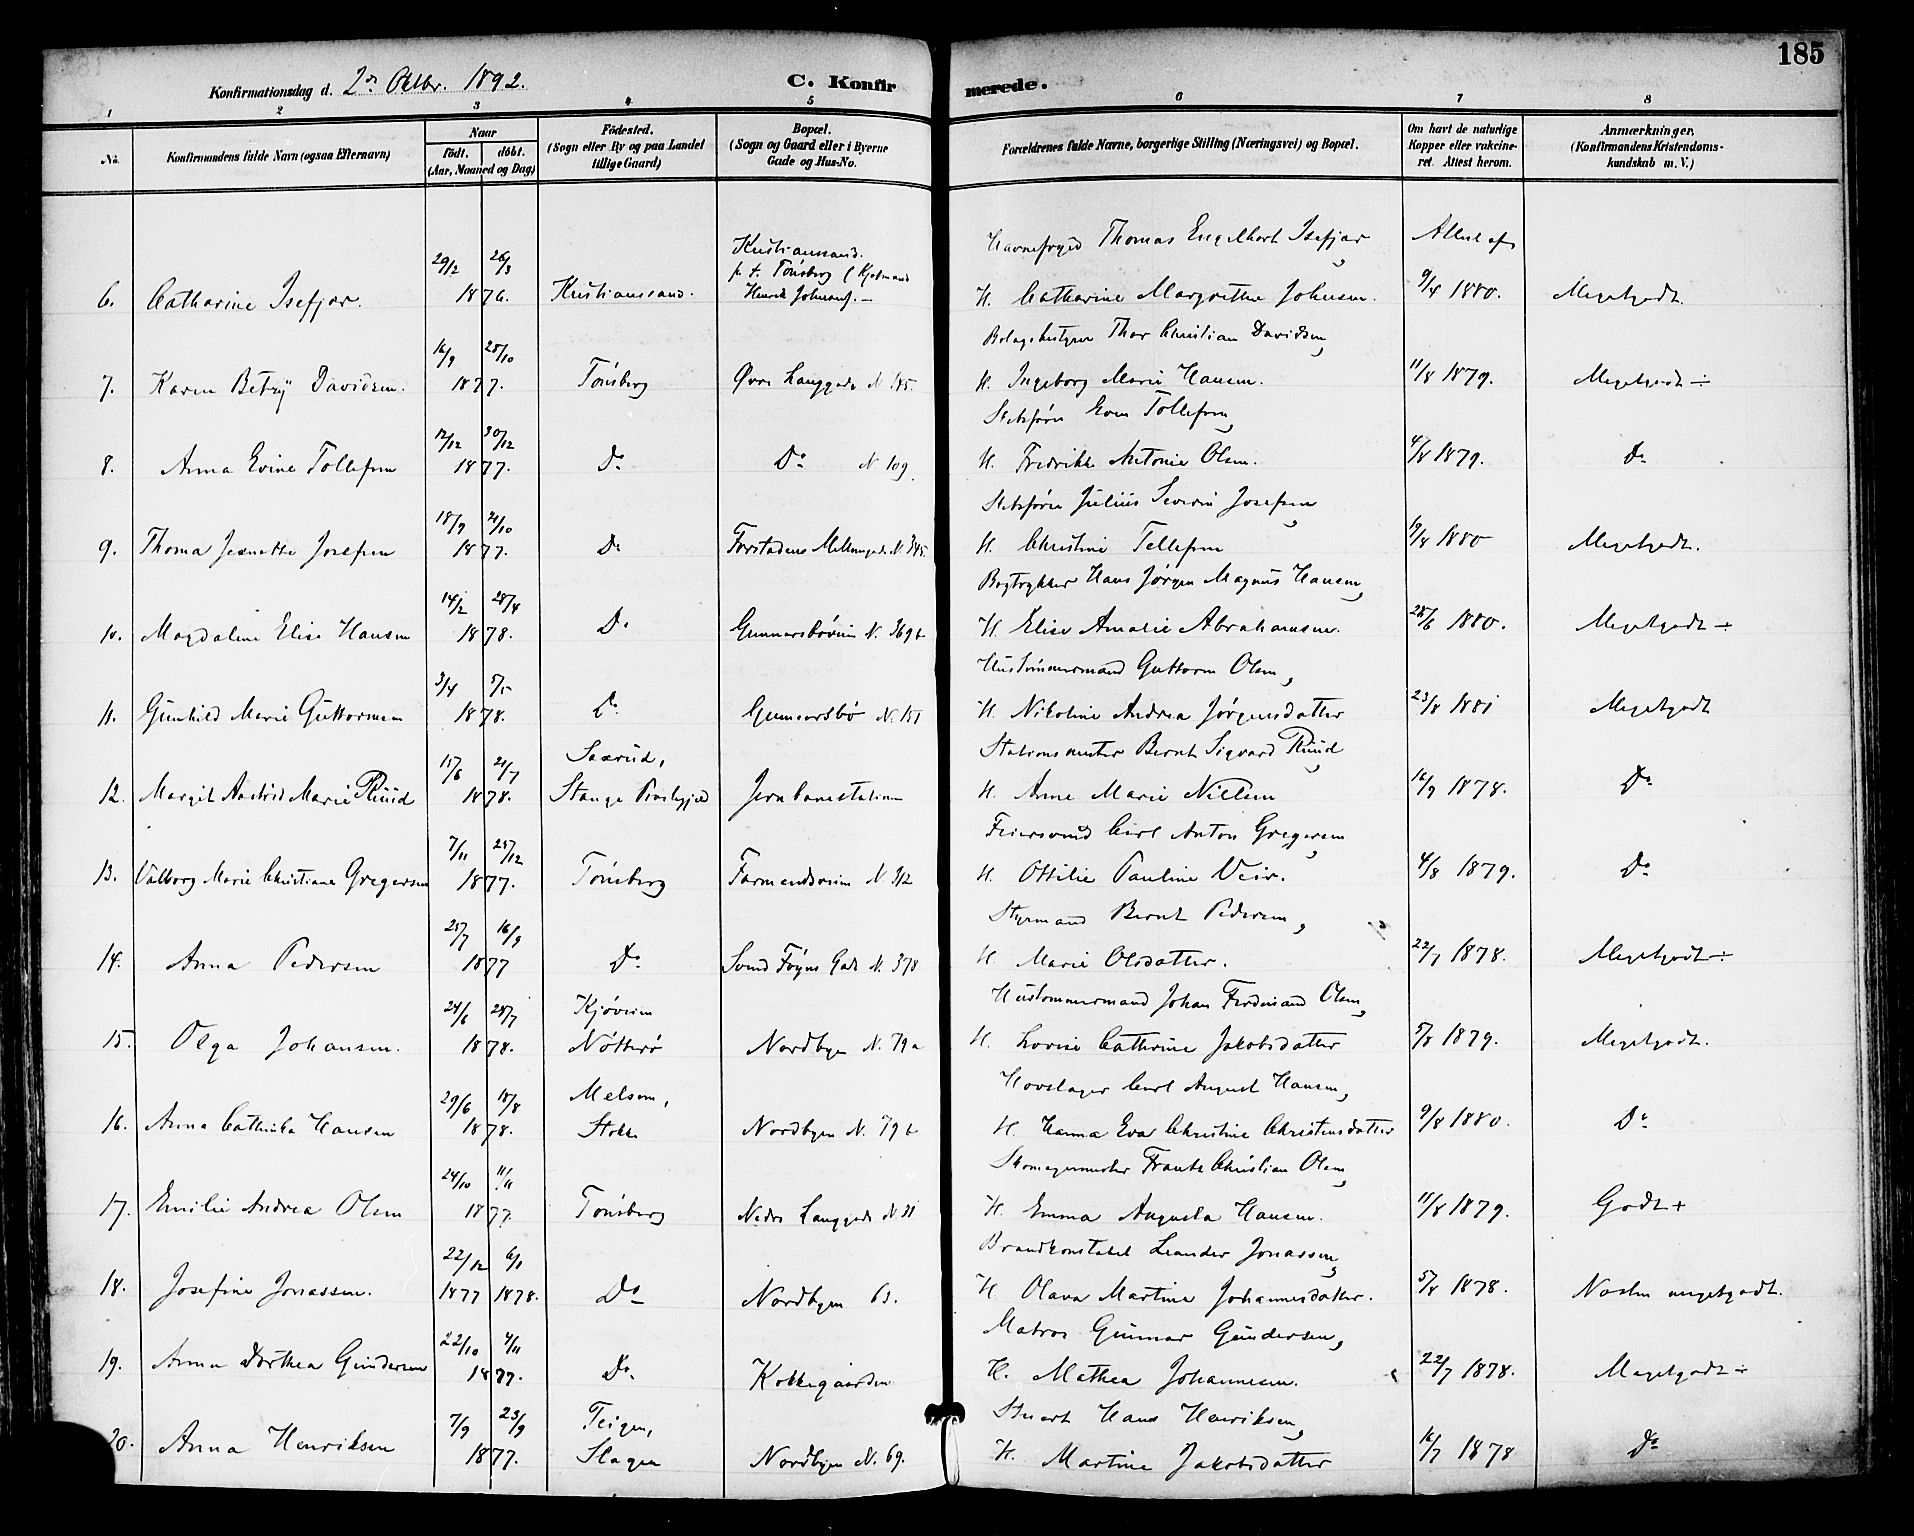 185
Konfirmationsdag d. 2den Oktbr. 1892. C. Konfirmerede.
1 2 3 4 5 6 7 8
No. Konfirmandens fulde Navn (ogsaa Efternavn) Naar født. døbt. (Aar, Maaned og Dag) Fødested. (Sogn eller By og paa Landet tillige Gaard) Bopæl. (Sogn og Gaard eller i Byerne Gade og Hus-No. Forældrenes fulde Navne, borgerlige Stilling (Næringsvei) og Bopæl. Om havt de naturlige Kopper eller vakcineret. Attest herom. Anmærkninger. (Konfirmandens Kristendomskundskab m. V.)
Kristianssand. Havnefoged Thomas Engelhart Isefjær, Attest af
29/2 26/3 p. t. Tønsberg (Kjøbmand
6. Catharine Isefjær. 1876. Kristianssand. Henrik Johnsen). H. Catharine Margrethe Johnsen. 9/4 1880. Megetgodt.
16/9 28/10 Thor Christian Davidsen,
7. Karen Betzy Davidsen. 1877. Tønsberg Øvre Langgade N. 145. H. Ingeborg Marie Hansen. 11/8 1879. Megetgodt ÷
12/12 30/12 Skibsfører Even Tollefsen,
8. Anna Evine Tollefsen 1877. Do Do N. 109. H. Fredrikke Antonie Olsen. 4/8 1879. Do
18/9 21/10 Skibsfører Julius Severin Josefsen,
9. Thoma Jeanette Josefsen 1877. Do Forstadens Mellemgade N. 345. H. Christine Tollefsen 19/4 1880 Megetgodt.
14/2 28/4 Bogtrykker Hans Jørgen Magnus Hansen,
10. Magdalene Elise Hansen 1878. Do Gunnarsbøveien N. 369b H. Elise Amalie Abrahamsen. 28/6 1880. Megetgodt ÷
3/4 5/5 Hustømmermand Guttorm Olsen,
11. Gunhild Marie Guttormsen 1878. Do Gunnarsbø N. 151 H. Nikoline Andrea Jørgensdatter 23/8 1881 Megetgodt
15/6 21/7 Saxrud, Stationsmester Bernt Sigvard Ruud,
12. Margit Aastrid Marie Ruud 1878. Stange Præstegjeld Jernbanestationen H. Anne Marie Nilsen 16/9 1878. Do
7/11 25/12 Feiersvend Carl Anton Gregersen,
13. Valborg Marie Christiane Gregersen 1877. Tønsberg Farmandsveien N. 312 H. Ottilie Pauline Veir. 4/8 1879. Do
25/7 16/9 Styrmand Bernt Pedersen,
14. Anna Pedersen 1877 Do Svend Føyns Gade N. 378 H. Marie Olsdatter. 22/7 1878. Megetgodt ÷
24/6 28/7 Kjøveien Hustømmermand Johan Ferdinand Olsen,
15. Olga Johansen. 1878. Nøtterø Nordbyen N. 79a H. Lovise Cathrine Jakobsdatter 5/8 1879. Megetgodt.
29/6 18/8 Melsom, Hovslager Carl August Hansen,
16. Anna Cathinka Hansen 1878. Stokke Nordbyen N. 79b H. Hanna Eva Christine Christensdatter 9/8 1880. Do
24/10 11/11 Skomagermester Frantz Christian Olsen,
17. Emilie Andrea Olsen 1877. Tønsberg Nedre Langgade N. 31 H. Emma Augusta Hansen. 11/8 1879. Godt +
22/12 6/1 Brandkonstabel Leander Jonassen,
18. Josefine Jonassen. 1877 1878. Do Nordbyen 63. H. Olava Martine Johannesdatter. 5/8 1878. Næsten megetgodt.
22/10 4/11 Matros Gunnar Gundersen,
19. Anna Dorthea Gundersen 1877. Do Kokkegaarden H. Mathea Johannesen. 22/7 1878. Megetgodt ÷
7/9 23/9 Teigen, Stuert Hans Henriksen,
20. Anna Henriksen 1877. Slagen Nordbyen N. 69. H. Martine Jakobsdatter 16/7 1878 Do